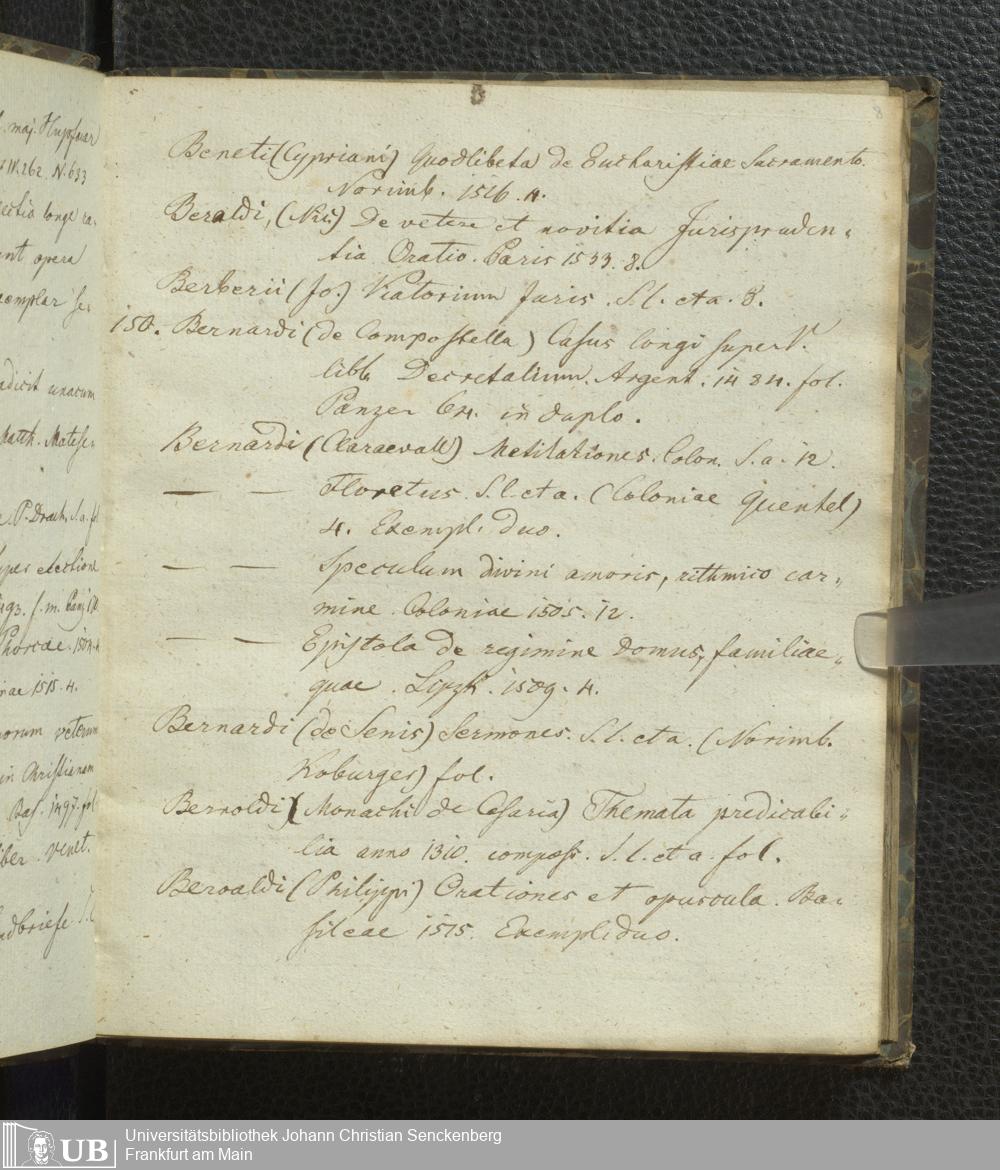 . maj. Hupfauer
IV. 262. N. 633
lectio longe ra,
ent opera
exemplar se,
adicit unacum
Matth. Matese,
P. Drach. S. a. f
super electione
493. f. m. Panz.
Phorcae. 1504. 4
nae 1515. 4.
norum veterum
in Christianam
Bas. 1497. fol
iber. venet.
ndbriefe. S. l
8
Beneti (Cypriani) Quodlibeta de Eucharistiae Sacramento.
Norimb. 1516. 4.
Beraldi, (Nic) De vetere et novitia Jurispruden„
tia Oratio. Paris 1533. 8.
Berberii (Jo.) Viatorium Juris. S. l. et a. 8.
150. Bernardi (de Compostella) Casus longi super V.
libb. Decretalium. Argent. 1484. fol.
Panzer 64. in duplo.
Bernardi (Claraevall) Metitationes. Colon. S. a. 12.
— — Floretus. S. l. et a. (Coloniae Quentel)
4. Exempl. duo.
— — Speculum divini amoris, rithmico car„
mine. Coloniae 1505. 12.
— — Epistola de regimine Domus, familiae„
quae. Lipzk. 1509. 4.
Bernardi (de Senis) Sermones. S. l. et a. (Norimb.
Koburger) fol.
Bernoldi (Monachi de Cesaria) Themata predicabi„
lia anno 1310. composs. S. l. et a. fol.
Beroaldi (Philippi) Orationes et opuscula. Ba„
sileae 1515. Exempl. duo.
UB
Universitätsbibliothek Johann Christian Senckenberg
Frankfurt am Main